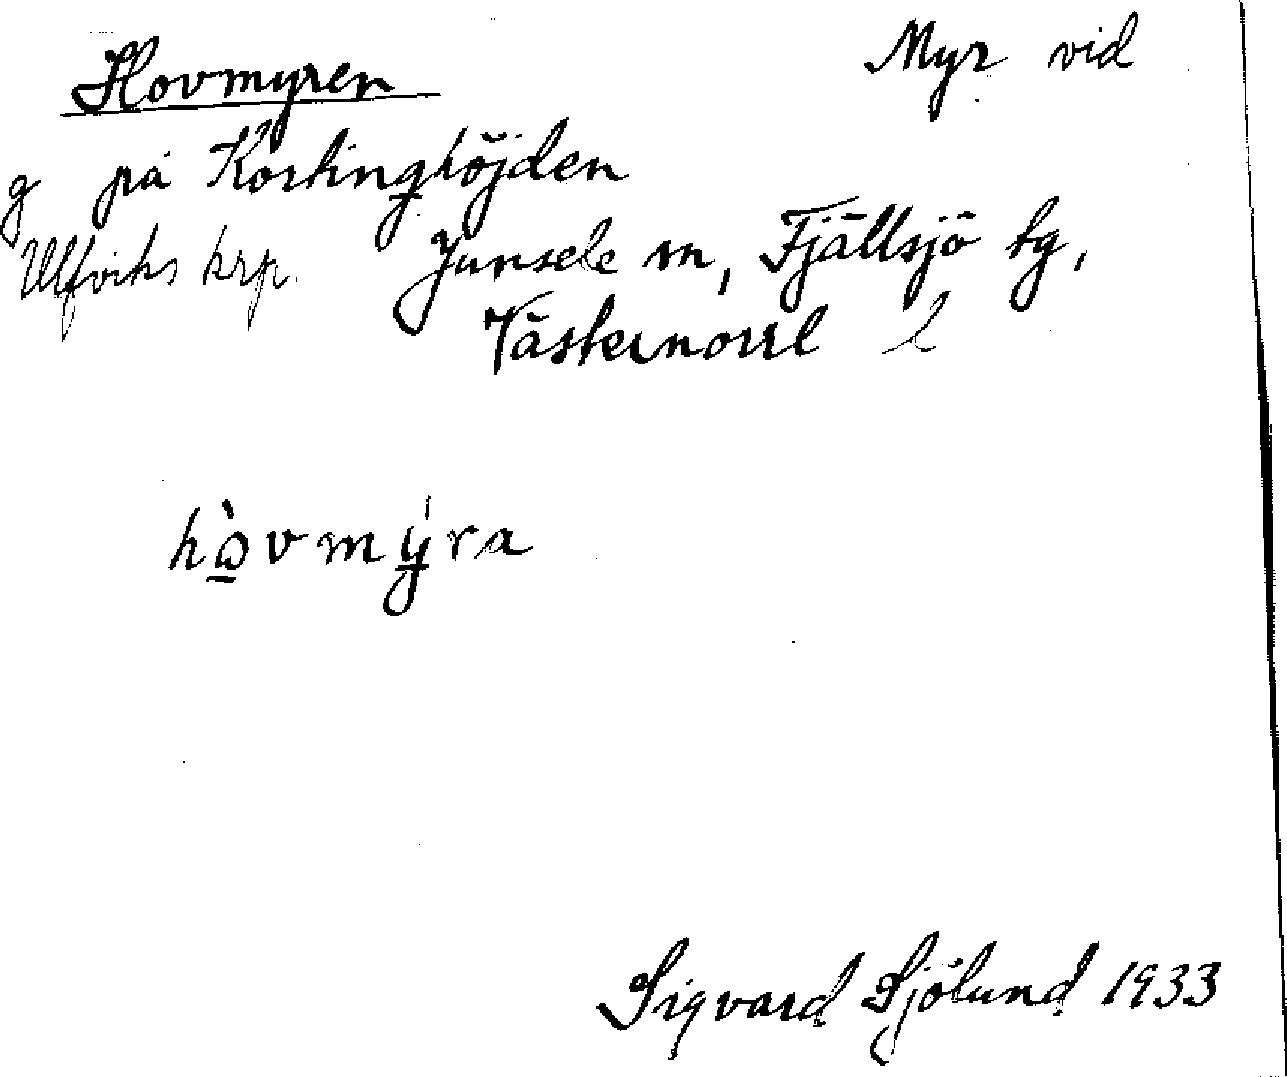 Hovmyren Myr vid
g på Korstinghöjden
Ulfviks krp. Junsele sn, Fjällsjö tg,
Västernorrl l
hòvmýra
Sigvard Sjölund 1933